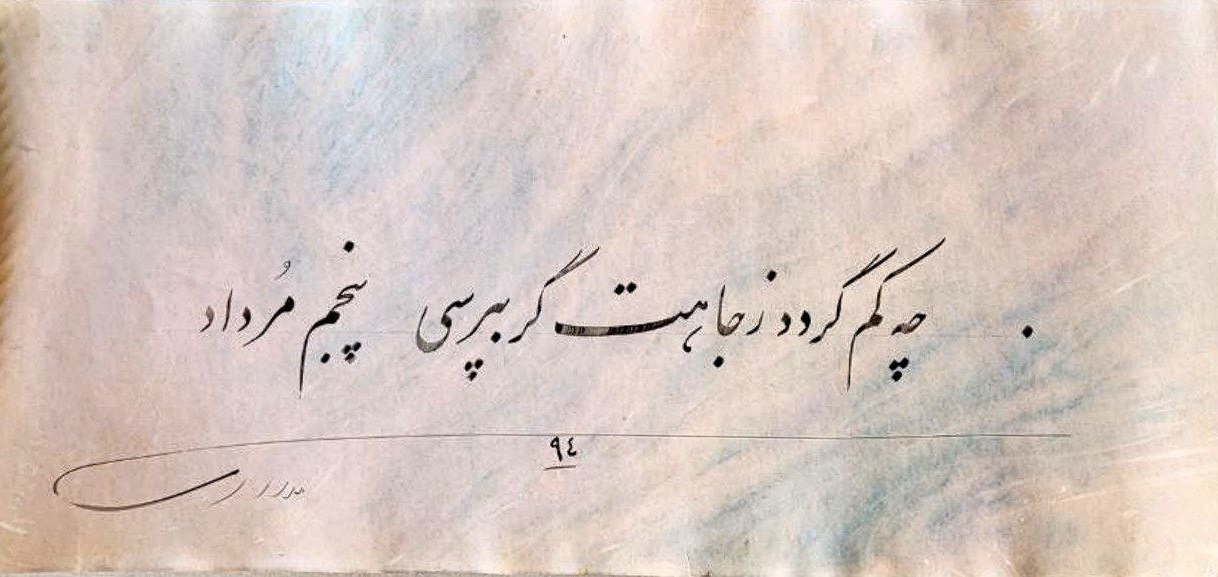 . چه کم گردد ز جاهت گر بپرسی پنجم مُرداد
۹٤